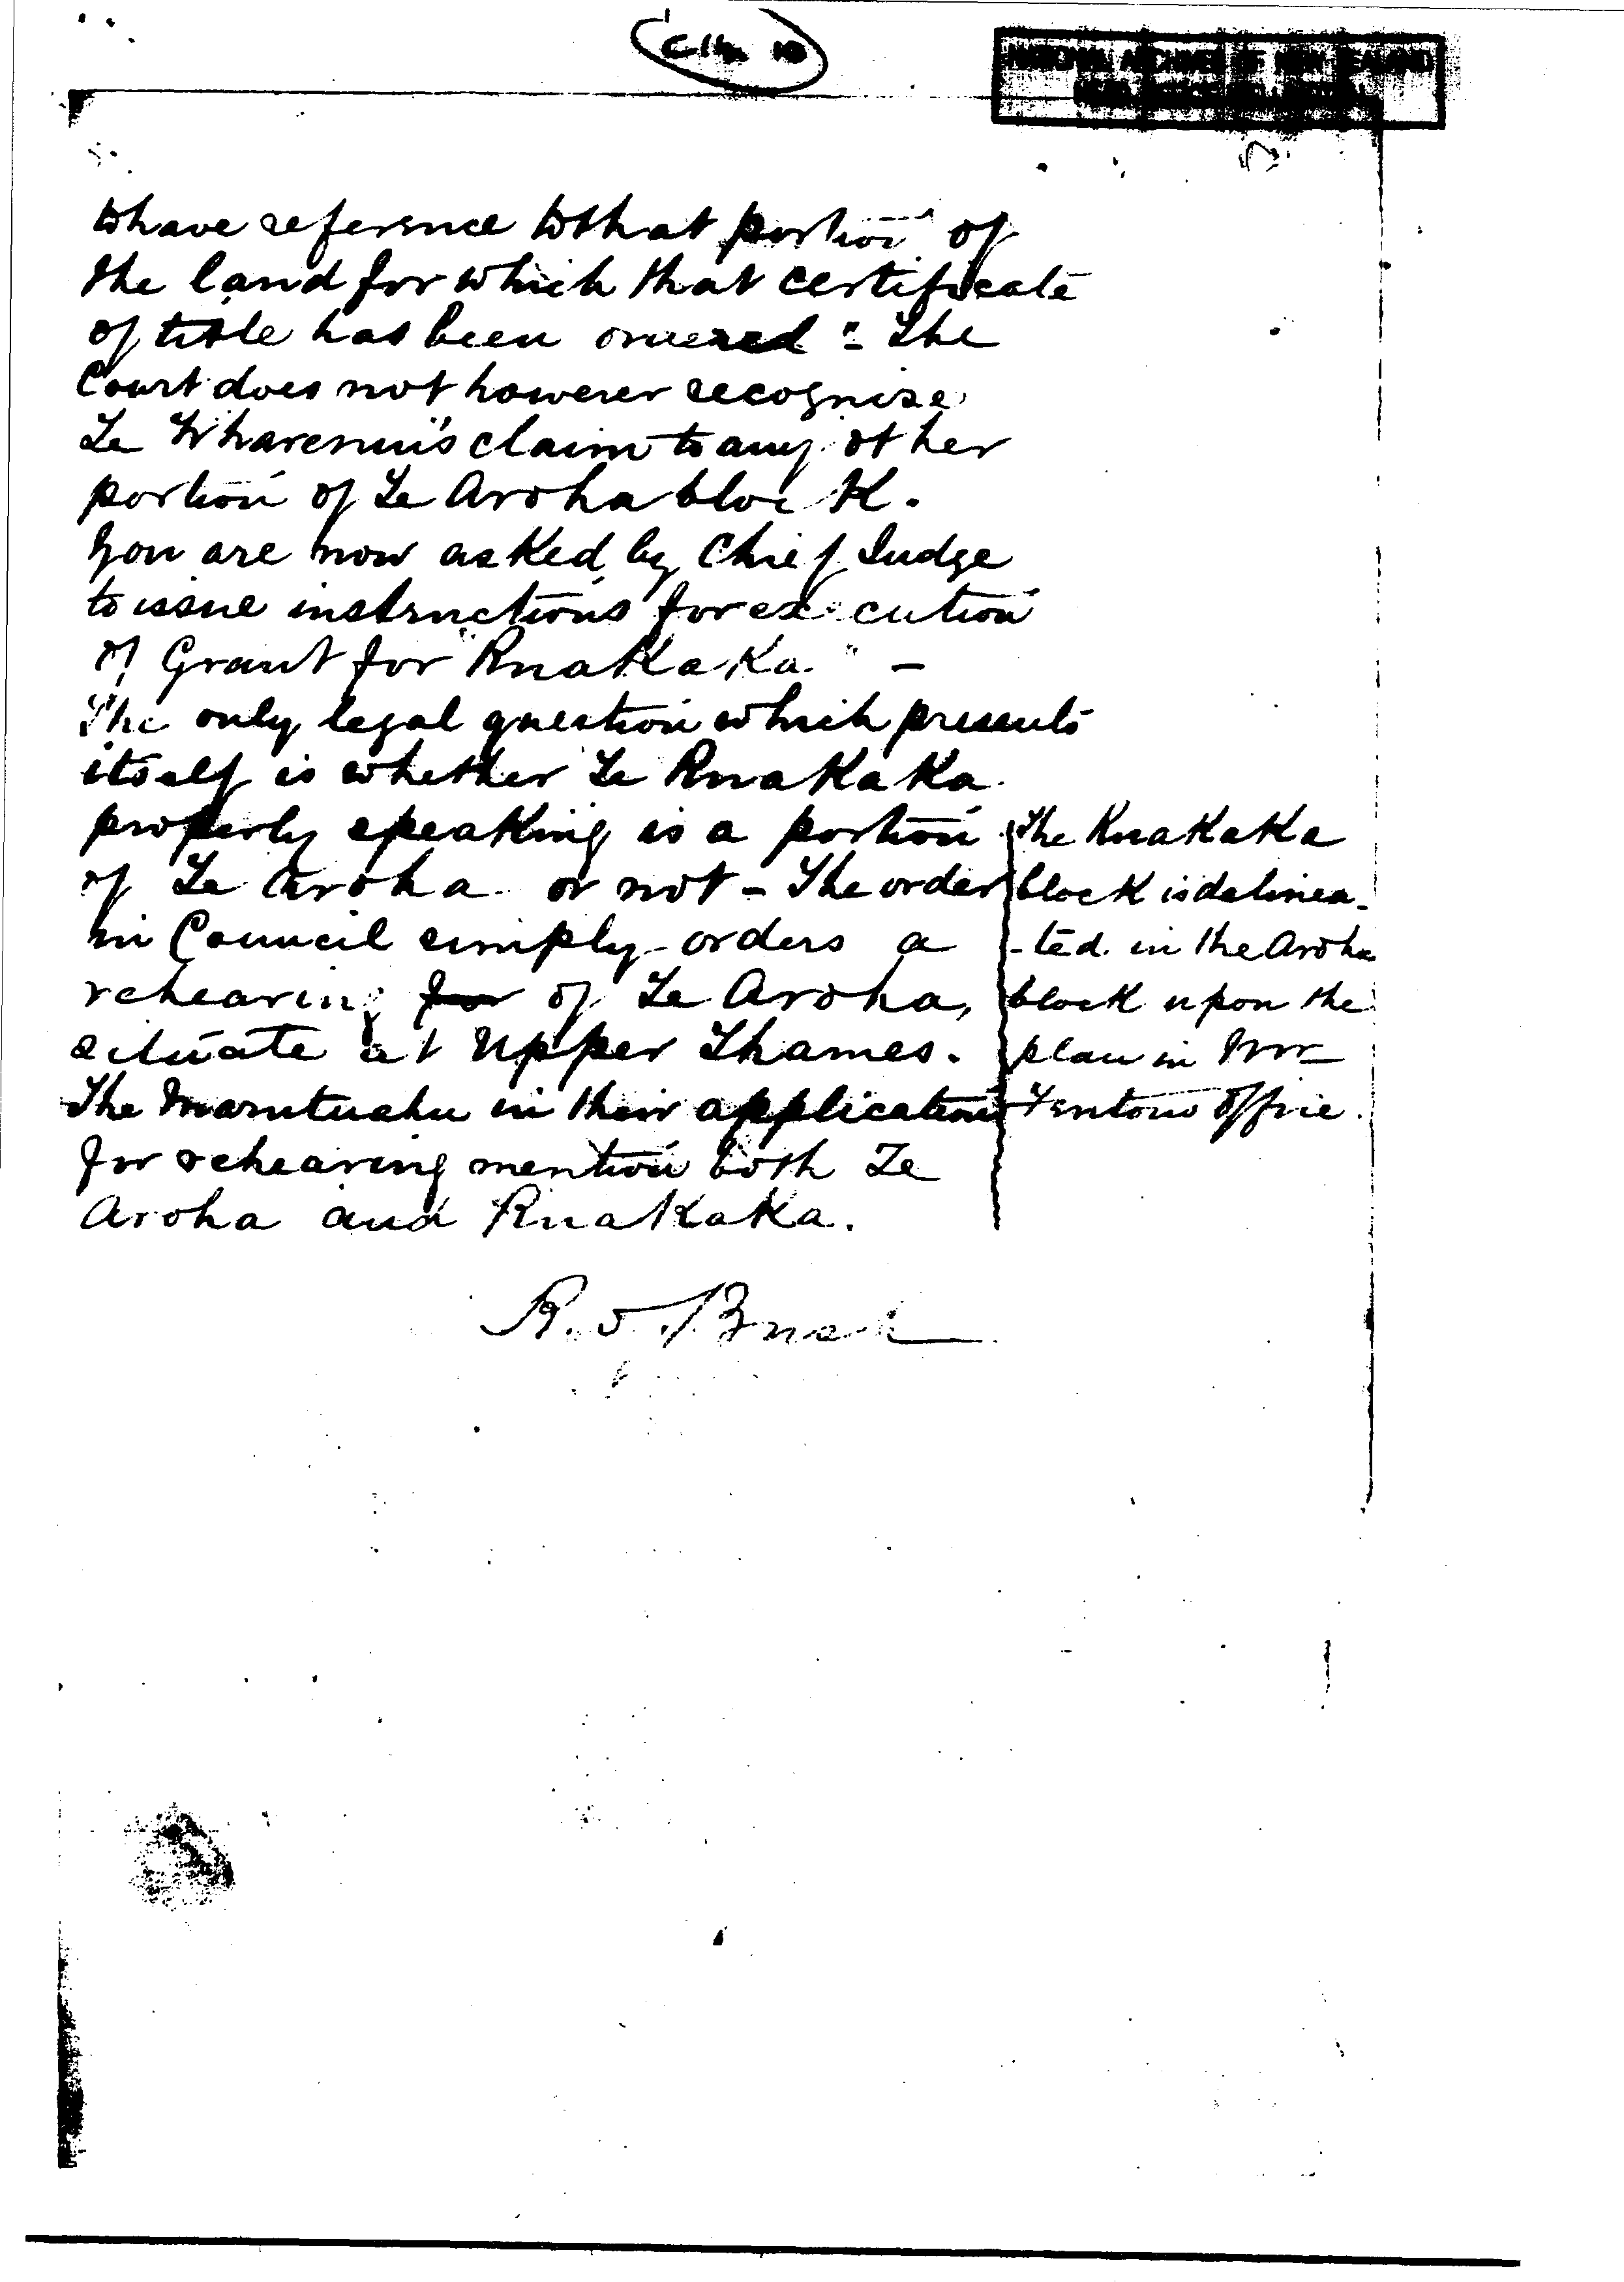 NATIONAL ARCHIVES OF NEW ZEALAND
to have reference to that portion of
the land for which that certificate
of title has been ordered" - The
Court does not however recognize
Te Wharenui's claim to any other
portion of Te Aroha block.
You are now asked by Chief Judge
to issue instructions for execution
of Grant for "Ruakaka." -
The only legal question which presents
itself is whether Te Ruakaka
properly speaking is a portion
of Te Aroha or not - The order
in Council simply orders a
rehearing for of Te Aroha,
situate at Upper Thames.
The Marutuahu in their application
for rehearing mention both Te
Aroha and Ruakaka.
The Ruakaka
block is delinea-
-ted in the Aroha
block upon the
plan in
office.